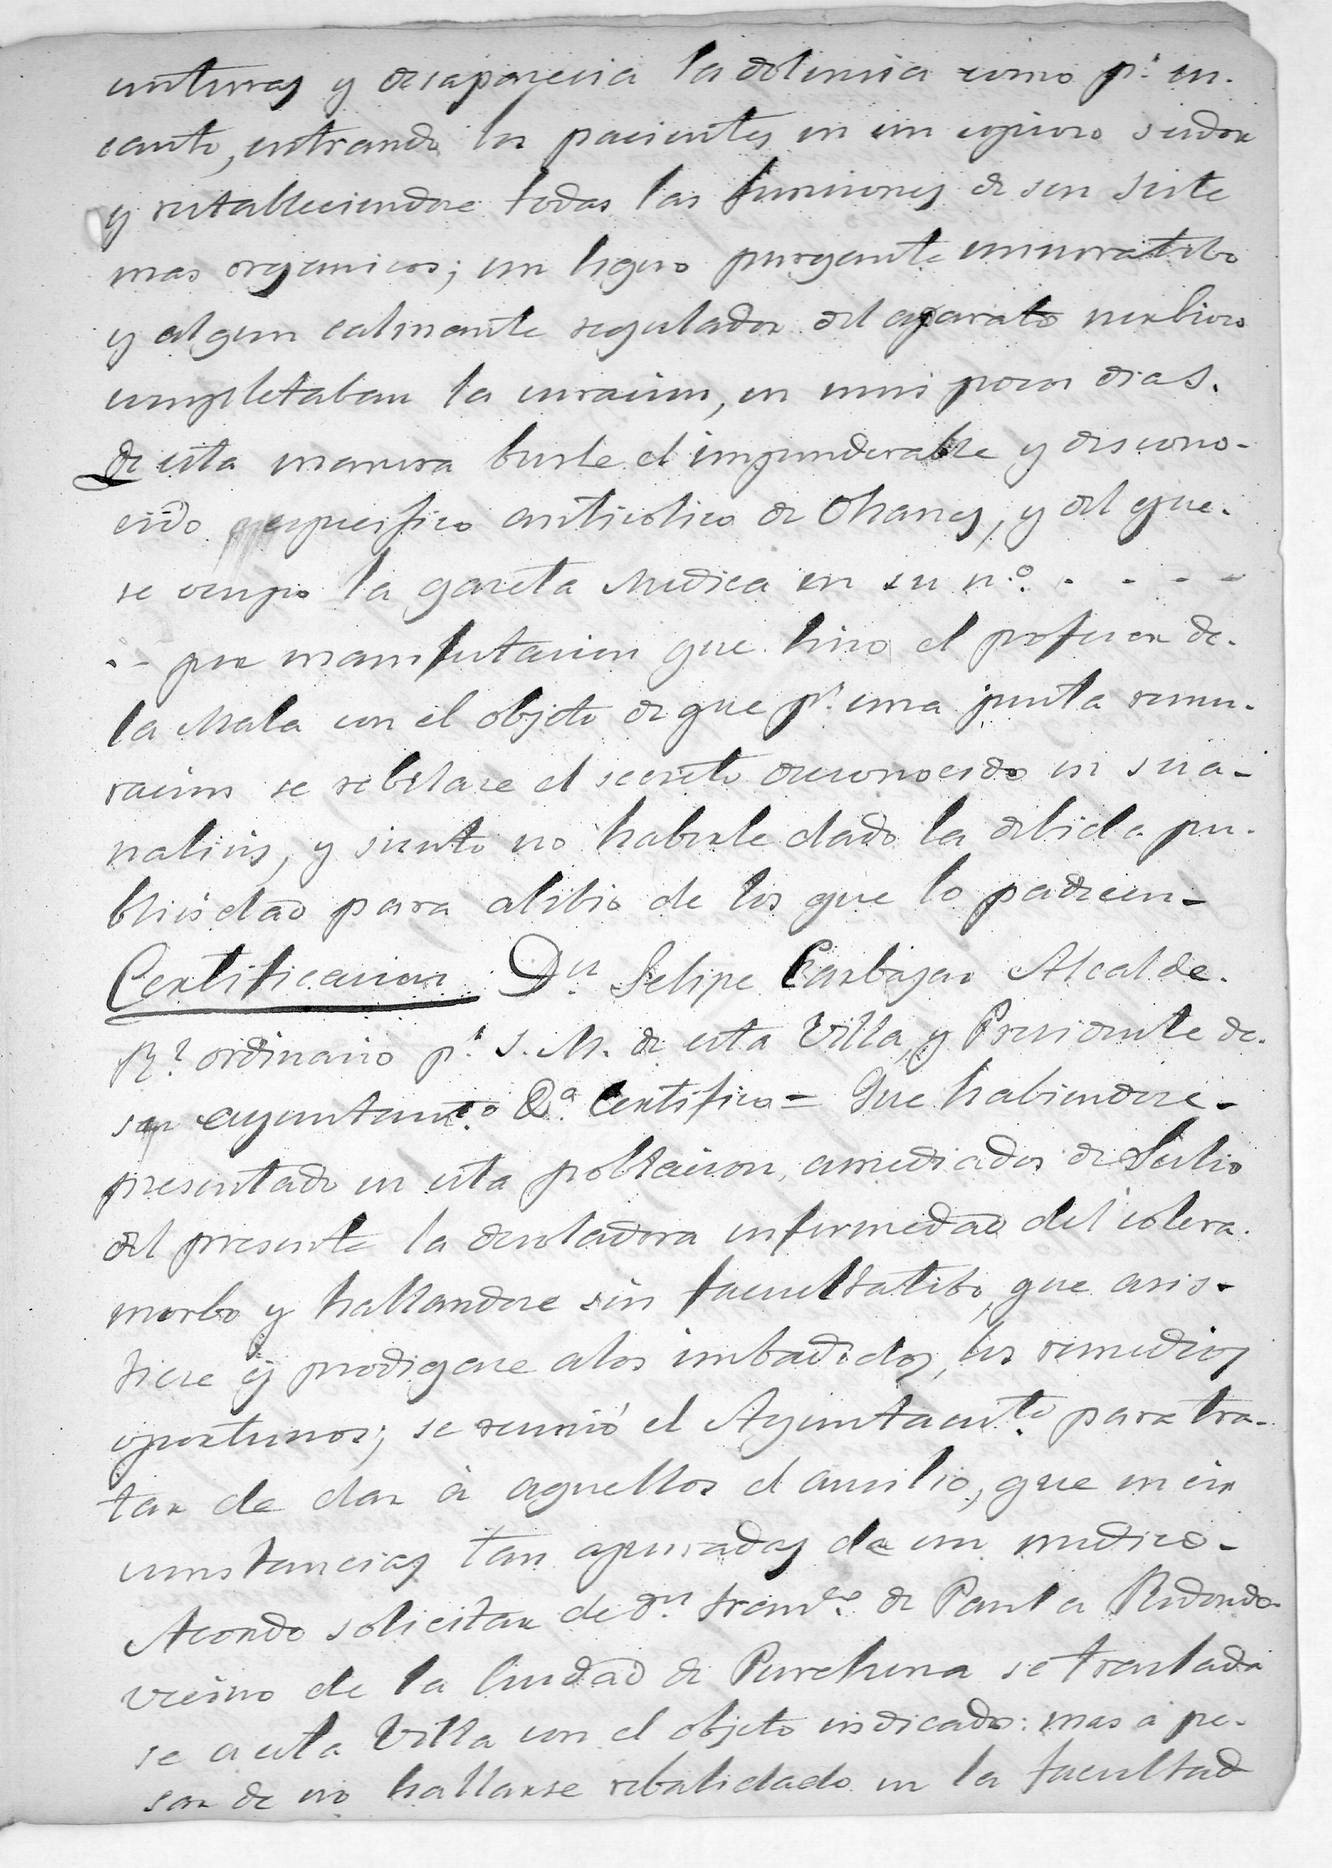 unturas y desaparecia la dolencia como pr. en-
canto, entrando los pacientes en un copioso sudor
y restableciendose todas las funciones de sus siste
mas organicos; un ligero purgante minoratibo
y algun calmante regulador del aparato nerbioso
completaban la curacion, en mui pocos dias.
De esta manera burle el imponderable y descono-
cido especifico anticolico de Ohanes, y del que-
se ocupo la gaceta Medica en su n.º . - - - -
. - por manifestacion que hizo el profesor de-
la Mata con el objeto de que pr. una junta remu-
racion se rebelase el secreto desconocido en su a-
nalisis, y siento no haberle dado la debida pu-
blicidad para alibio de los que lo padecen-
Certificacion Dn. Felipe Carbajar Alcalde-
Rl. ordinario pr. S. M. de esta Villa, y Presidente de-
su ayuntamto. &a. Certifico = Que habiendose-
presentado en esta poblacion, amediados de Julio
del presente la desoladora enfermedad del colera-
morbo y hallandose sin facultatibo, que asis-
tiese y prodigase alos imbadidos, los remedios
oportunos; se reunió el Ayuntamto. para tra-
tar de dar á aquellos el ausilio, que en cir
cunstancias tan apuradas da un medico-
Acordo solicitar de Dn. Franco. de Paula Redondo-
vecino de la Ciudad de Purchena se traslada
se a esta Villa con el objeto indicado: mas a pe-
sar de no hallarse rebalidado en la facultad